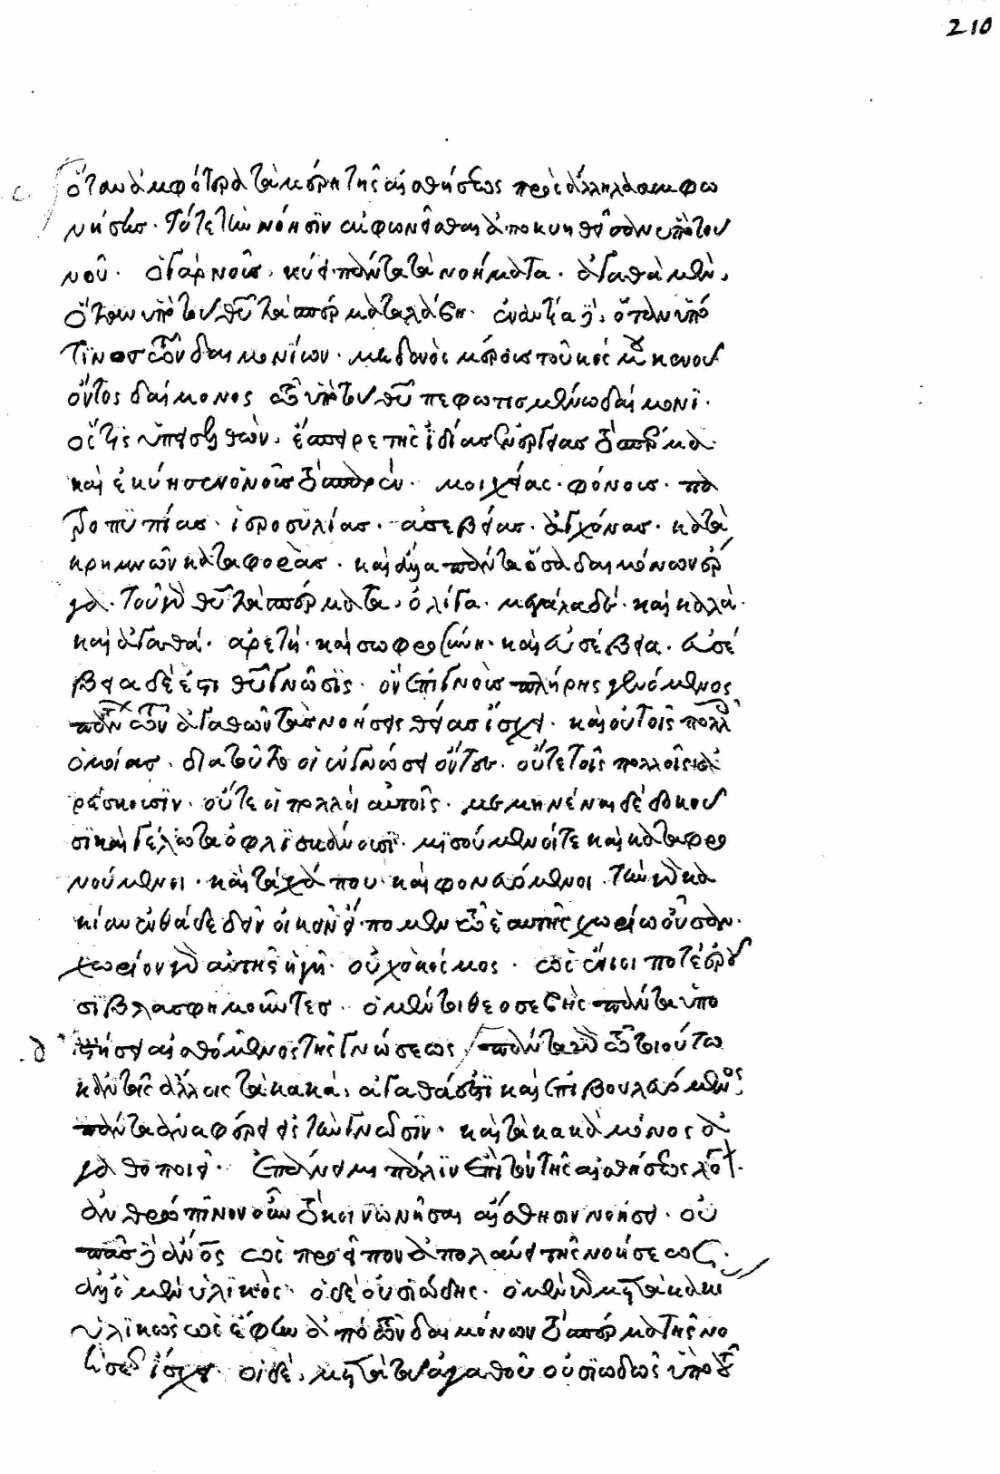 210
ὅταν ἀμφότερα τὰ μέρη τῆς αἰσθήσεως πρὸς ἄλληλα συμφω
νήσῃ. τότε τὴν νόησιν ἐκφωνεῖσθαι ἀποκυηθεῖσαν ὑπὸ τοῦ
νοῦ. ὁ γὰρ νοῦς, κύει πάντα τὰ νοήματα. ἀγαθὰ μὲν,
ὅταν ὑπὸ τοῦ θεοῦ τὰ σπέρματα λάβῃ. ἐναντία δὲ, ὅταν ὑπό
τινος τῶν δαιμονίων. μηδενὸς μέρους τοῦ κόσμου κενοῦ
ὄντος δαίμονος τῷ ὑπὸ τοῦ θεοῦ πεφωτισμένῳ δαίμονι.
ὅστις ὑπεισελθὼν, ἔσπειρε τῆς ἰδίας ἐνεργείας τὸ σπέρμα.
καὶ ἐκύησεν ὁ νοῦς τὸ σπαρέν. μοιχείας. φόνους. πα
τροτυπίας. ἱεροσυλίας. ἀσεβείας. ἀγχόνας. κατὰ
κρημνῶν καταφοράς. καὶ ἄλλα πάντα ὅσα δαιμόνων ἔρ
γα. τοῦ γὰρ θεοῦ τὰ σπέρματα, ὀλίγα. μεγάλα δέ. καὶ καλὰ.
καὶ ἀγαθά. ἀρετὴ. καὶ σωφροσύνη. καὶ εὐσέβεια. εὐσέ
βεια δέ ἐστι θεοῦ γνῶσις. ὃν ἐπιγνοὺς πλήρης γενόμενος
πάντων τῶν ἀγαθῶν τὰς νοήσεις θείας ἴσχει. καὶ οὐ τοῖς πολλοῖς
ὁμοίας. διὰ τοῦτο οἱ ἐν γνώσει ὄντες. οὔτε τοῖς πολλοῖς ἀ
ρέσκουσιν. οὔτε οἱ πολλοὶ αὐτοῖς. μεμηνέναι δὲ δοκοῦ
σι καὶ γέλωτα ὀφλισκάνουσι. μισούμενοί τε καὶ καταφρο
νούμενοι. καὶ τάχα που καὶ φονευόμενοι. τὴν γὰρ κα
κίαν ἐνθάδε δεῖν οἰκεῖν εἴπομεν ἐν τῷ ἑαυτῆς χωρίῳ οὖσαν.
χωρίον γὰρ αὐτῆς ἡ γῆ. οὐχ ὁ κόσμος. ὡς ἔνιοί ποτε ἐροῦ
σι βλασφημοῦντες. ὁ μέντοι θεοσεβὴς πάντα ὑπο
στήσει αἰσθόμενος τῆς γνώσεως. πάντα γὰρ τῷ τοιούτῳ
κἂν τοῖς ἄλλοις τὰ κακὰ, ἀγαθά ἐστι καὶ ἐπιβουλευόμενος
πάντα ἀναφέρει εἰς τὴν γνῶσιν. καὶ τὰ κακὰ μόνος ἀ
γαθοποιεῖ. ἐπάνειμι πάλιν ἐπὶ τὸν τῆς αἰσθήσεως λόγον.
ἀνθρώπινον οὖν τὸ κοινωνῆσαι αἴσθησιν νοήσει. οὐ
πᾶς δὲ ἄνθρωπος ὡς προεῖπον ἀπολαύει τῆς νοήσεως.
ἀλλ' ὁ μὲν ὑλικὸς. ὁ δὲ οὐσιώδης. ὁ μὲν γὰρ μετὰ κακίας
ὑλικὸς ὡς ἔφην ἀπὸ τῶν δαιμόνων τὸ σπέρμα τῆς νο
ήσεως ἴσχει. οἱ δὲ, μετὰ τοῦ ἀγαθοῦ οὐσιωδῶς ὑπὸ τοῦ